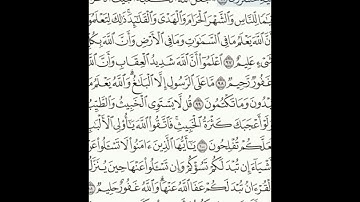 قِيَٰمًا لِّلنَّاسِ وَٱلشَّهْرَ ٱلْحَرَامَ وَٱلْهَدْىَ وَٱلْقَلَٰٓئِدَ ۚ ذَٰلِكَ لِتَعْلَمُوٓا۟
أَنَّ ٱللَّهَ يَعْلَمُ مَا فِى ٱلسَّمَٰوَٰتِ وَمَا فِى ٱلْأَرْضِ وَأَنَّ ٱللَّهَ بِكُلِّ
شَىْءٍ عَلِيمٌ ٩٧ ٱعْلَمُوٓا۟ أَنَّ ٱللَّهَ شَدِيدُ ٱلْعِقَابِ وَأَنَّ ٱللَّهَ
غَفُورٌ رَّحِيمٌ ٩٨ مَّا عَلَى ٱلرَّسُولِ إِلَّا ٱلْبَلَٰغُ ۗ وَٱللَّهُ يَعْلَمُ مَا
تُبْدُونَ وَمَا تَكْتُمُونَ ٩٩ قُل لَّا يَسْتَوِى ٱلْخَبِيثُ وَٱلطَّيِّبُ
وَلَوْ أَعْجَبَكَ كَثْرَةُ ٱلْخَبِيثِ ۚ فَٱتَّقُوا۟ ٱللَّهَ يَٰٓأُو۟لِى ٱلْأَلْبَٰبِ
لَعَلَّكُمْ تُفْلِحُونَ ١٠٠ يَٰٓأَيُّهَا ٱلَّذِينَ ءَامَنُوا۟ لَا تَسْـَٔلُوا۟ عَنْ
أَشْيَآءَ إِن تُبْدَ لَكُمْ تَسُؤْكُمْ وَإِن تَسْـَٔلُوا۟ عَنْهَا حِينَ يُنَزَّلُ
ٱلْقُرْءَانُ تُبْدَ لَكُمْ عَفَا ٱللَّهُ عَنْهَا ۗ وَٱللَّهُ غَفُورٌ حَلِيمٌ ١٠١